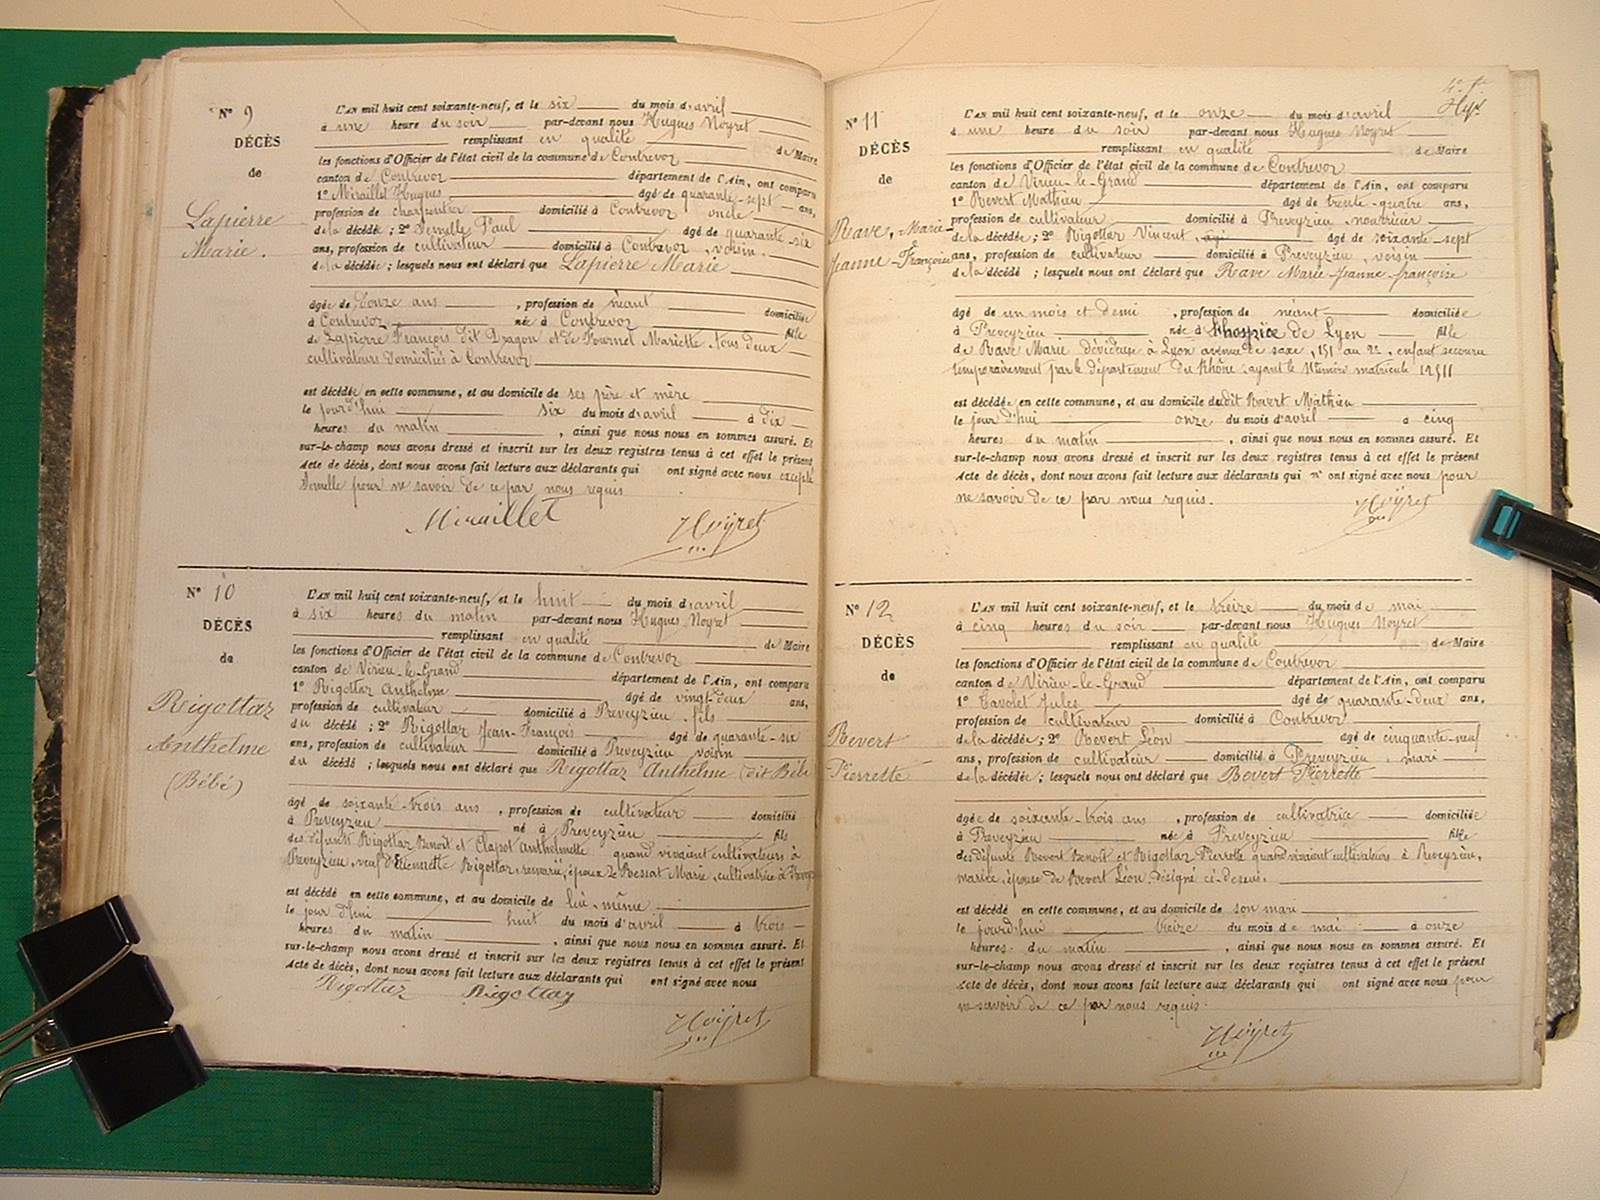 N° 9
DÉCÈS
de
Lapierre
Marie.
L'AN mil huit cent soixante-neuf, et le six du mois d'avril
à une heure du soir par-devant nous Hugues Noyret
remplissant en qualité de Maire
les fonctions d'Officier de l'état civil de la commune de Contrevoz
canton de Contrevoz département de l'Ain, ont comparu
1° Miraillet Hugues âgé de quarante-sept ans,
profession de charpentier domicilié à Contrevoz oncle
de la décédée ; 2° Demelle Paul âgé de quarante-six
ans, profession de cultivateur domicilié à Contrevoz, voisin.
de la décédée ; lesquels nous ont déclaré que Lapierre Marie
âgée de onze ans, profession de néant domiciliée
à Contrevoz née à Contrevoz fille
de Lapierre François dit Dragon et de Fournel Mariette tous deux
cultivateurs domiciliés à Contrevoz
est décédée en cette commune, et au domicile de ses père et mère
le jourd'hui six du mois d'avril à dix
heures du matin, ainsi que nous nous en sommes assuré. Et
sur-le-champ nous avons dressé et inscrit sur les deux registres tenus à cet effet le présent
Acte de décès, dont nous avons fait lecture aux déclarants qui ont signé avec nous excepté
Demelle pour ne savoir de ce par nous requis
Miraillet Noyret
N° 10
DÉCÈS
de
Rigottaz
Anthelme
(Bébé)
L'AN mil huit cent soixante-neuf, et le huit du mois d'avril
à six heures du matin par-devant nous Hugues Noyret
remplissant en qualité de Maire
les fonctions d'Officier de l'état civil de la commune de Contrevoz
canton de Virieu-le-Grand département de l'Ain, ont comparu
1° Rigottaz Anthelme âgé de vingt-deux ans,
profession de cultivateur domicilié à Preveyzieu, fils
du décédé ; 2° Rigottaz Jean-François âgé de quarante-six
ans, profession de cultivateur domicilié à Preveyzieu voisin
du décédé ; lesquels nous ont déclaré que Rigottaz Anthelme (dit Bébé
âgé de soixante-trois ans, profession de cultivateur domicilié
à Preveyzieu né à Preveyzieu fils
des défunts Rigottaz Benoit et Clapot Anthelmette quand vivaient cultivateurs à
Preveyzieu, veuf d'Etiennette Rigottaz, remarié, époux de Bessat Marie, cultivatrice à
est décédé en cette commune, et au domicile de lui-même
le jour d'hui huit du mois d'avril à trois
heures du matin, ainsi que nous nous en sommes assuré. Et
sur-le-champ nous avons dressé et inscrit sur les deux registres tenus à cet effet le présent
Acte de décès, dont nous avons fait lecture aux déclarants qui ont signé avec nous
Rigottaz Rigottaz
Noyret
N° 11
DÉCÈS
de
Rave, Marie-
Jeanne-Françoise
L'AN mil huit cent soixante-neuf, et le onze du mois d'avril
à une heure du soir par-devant nous Hugues Noyret
remplissant en qualité de Maire
les fonctions d'Officier de l'état civil de la commune de Contrevoz
canton de Virieu-le-Grand département de l'Ain, ont comparu
1° Revert Mathieu âgé de trente-quatre ans,
profession de cultivateur domicilié à Preveyzieu nourricier
de la décédée ; 2° Rigottaz Vincent, âgé de soixante-sept
ans, profession de cultivateur domicilié à Preveyzieu, voisin
de la décédée ; lesquels nous ont déclaré que Rave Marie-Jeanne-françoise
âgé de un mois et demi, profession de néant domiciliée
à Preveyzieu née à l'hospice de Lyon fille
de Rave Marie dévideuse à Lyon avenue de saxe, 151 au 2e, enfant secouru
temporairement par le département du Rhône ayant le Numéro matricule 12511
est décédée en cette commune, et au domicile dudit Revert Mathieu
le jour d'hui onze du mois d'avril à cinq
heures du matin, ainsi que nous nous en sommes assuré. Et
sur-le-champ nous avons dressé et inscrit sur les deux registres tenus à cet effet le présent
Acte de décès, dont nous avons fait lecture aux déclarants qui n'ont signé avec nous pour
ne savoir de ce par nous requis. Noyret
N° 12
DÉCÈS
de
Revert
Pierrette
L'AN mil huit cent soixante-neuf, et le treize du mois de mai
à cinq heures du soir par-devant nous Hugues Noyret
remplissant en qualité de Maire
les fonctions d'Officier de l'état civil de la commune de Contrevoz
canton de Virieu-le-Grand département de l'Ain, ont comparu
1° Tavolet Jules âgé de quarante-deux ans,
profession de cultivateur domicilié à Contrevoz
de la décédée ; 2° Revert Léon âgé de cinquante-neuf
ans, profession de cultivateur domicilié à Preveyzieu, mari
de la décédée ; lesquels nous ont déclaré que Revert Pierrette
âgée de soixante-trois ans, profession de cultivatrice domiciliée
à Preveyzieu née à Preveyzieu fille
des défunts Revert Benoit et Rigottaz Pierrette quand vivaient cultivateurs à Preveyzieu,
mariée, épouse de Revert Léon, désigné ci-dessus.
est décédé en cette commune, et au domicile de son mari
le jourd'hui treize du mois de mai à onze
heures du matin, ainsi que nous nous en sommes assuré. Et
sur-le-champ nous avons dressé et inscrit sur les deux registres tenus à cet effet le présent
Acte de décès, dont nous avons fait lecture aux déclarants qui ont signé avec nous pour
ne savoir de ce par nous requis.
Noyret